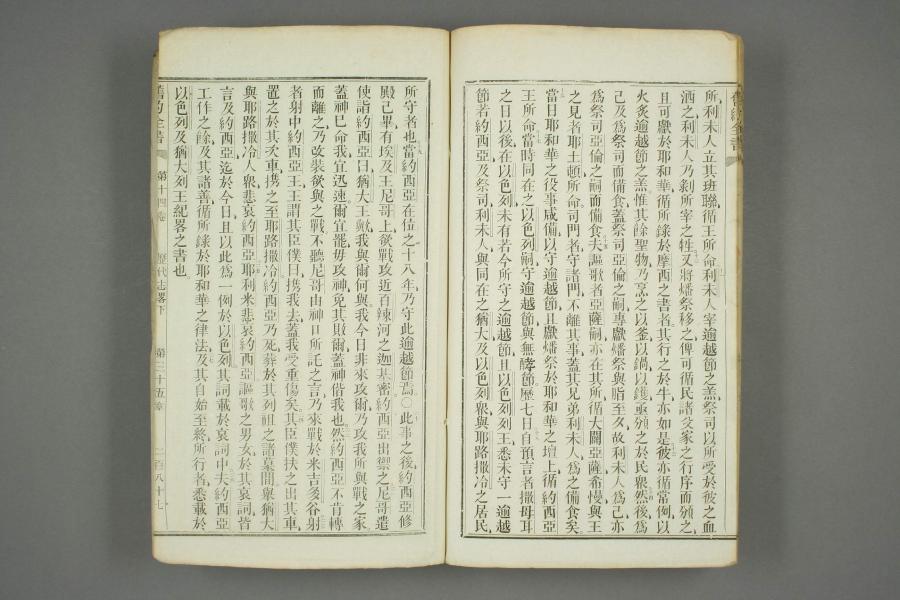 所、利未人立其班聯、循王所命、利未人宰逾越節之羔、祭司以所受於彼之血
洒之、利未人乃剝所宰之牲、又將燔祭移之、俾可循民諸父家之行序而頒之、
且可獻於耶和華、循所錄於摩西之書者、其行之於牛亦如是、彼亦循當例、以
火炙逾越節之羔、惟其餘聖物、乃烹之以釜以鍋以鑊、亟頒之於民衆、然後爲
己及爲祭司而備食、蓋祭司亞倫之嗣、專獻燔祭與脂至夕、故利未人爲己、亦
爲祭司亞倫之嗣而備食、夫謳歌者亞薩嗣、亦在其所、循大闢亞薩希慢與王
之見者耶土頓所命、司門者守諸門、不離其事、蓋其兄弟利未人、爲之備食矣、
當日耶和華之役事咸備、以守逾越節、且獻燔祭於耶和華之壇上、循約西亞
王所命、當時同在之以色列嗣、守逾越節、與無酵節、歷七日、自預言者撒母耳
之日以後、在以色列未有若今所守之逾越節、且以色列列王、悉未守一逾越
節、若約西亞及祭司利未人、與同在之猶大及以色列衆、與耶路撒冷之居民
所守者也、當約西亞在位之十八年、乃守此逾越節焉、○此事之後、約西亞修
殿已畢、有埃及王尼哥上、欲戰攻近百辣河之迦基密、約西亞出禦之、尼哥遣
使詣約西亞曰、猶大王歟、我與爾何與、我今日非來攻爾、乃攻我所與戰之家、
蓋神已命我宜迅速、爾宜罷毋攻神、免其敗爾、蓋神偕我也、然約西亞不肯轉
而離之、乃改裝欲與之戰、不聽尼哥由神口所託之言、乃來戰於米吉多谷、射
者射中約西亞王、王謂其臣僕曰、携我去、蓋我受重傷矣、其臣僕扶之出其車、
置之於其次車、携之至耶路撒冷、約西亞乃死、葬於其列祖之諸墓間、衆猶大
與耶路撒冷人衆、悲哀約西亞、耶利米悲哀約西亞、謳歌之男女、於其哀詞皆
言及約西亞、迄於今日、且以此爲一例於以色列、其詞載於哀詞中、夫約西亞
工作之餘、及其諸善、循所錄於耶和華之律法、及其自始至終所行者、悉載於
以色列及猶大列王紀畧之書也、
舊約全書 第十四卷 歷代志畧下 第三十五章 二百八十七